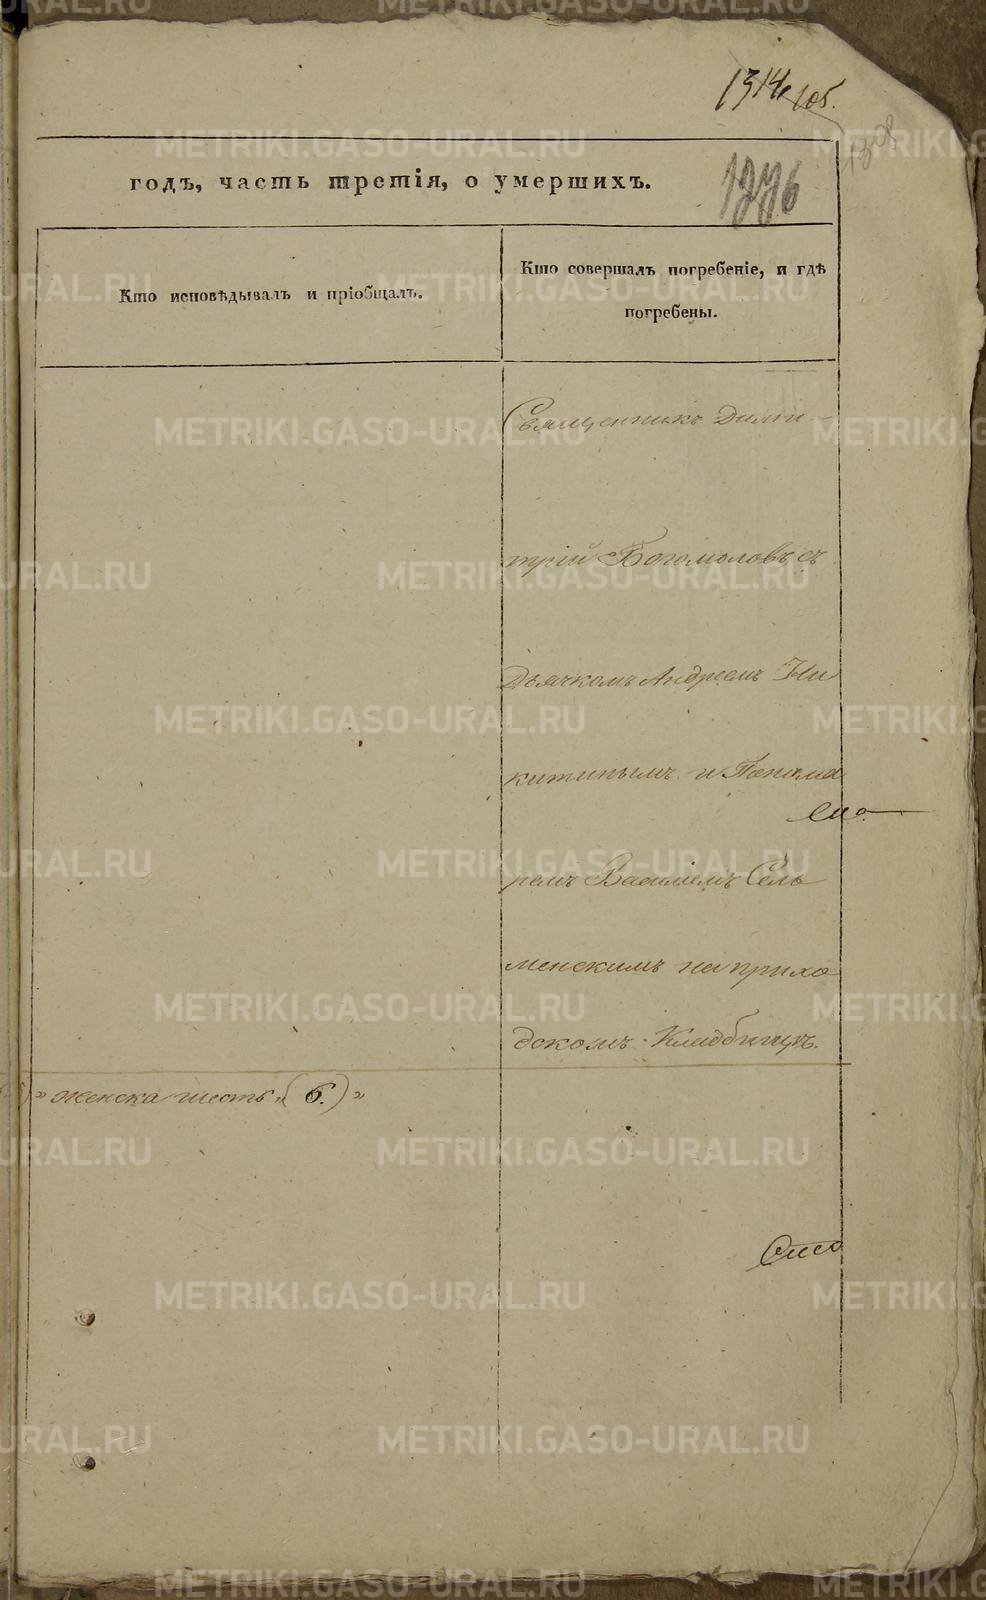 1314 об.
1308
годъ, часть третія, о умершихъ.
1276
Кто исповѣдывалъ и пріобщалъ.
Кто совершалъ погребеніе, и гдѣ
погребены.
Священникъ Дими-
трій Богомоловъ съ
Дьячкомъ Андреемъ Ни
китинымъ и Понома
ремъ Василіемъ Сель
менскимъ на прихо
дскомъ Кладбищѣ.
" женска шесть " (6.) "
METRIKI.GASO-URAL.RU